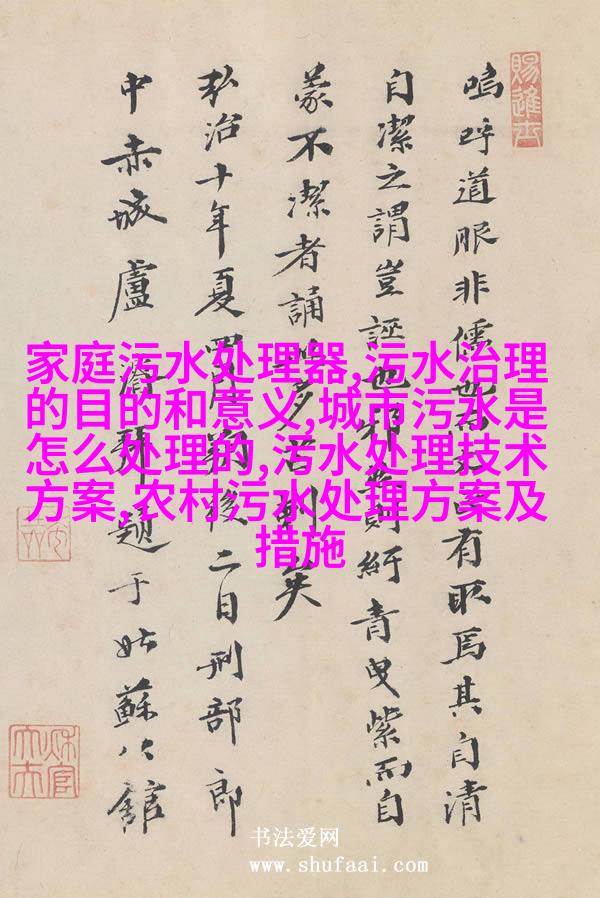 賜進士
嗚呼道服非儒也有取焉其自清
自潔之謂豈誣也則紆青曳紫而自
蒙不潔者誦多苦刺矣
弘治十年夏四月朔後二日刑部郎
中赤城盧濬拜題于姑蘇公館
家庭污水处理器,污水治理
的目的和意义,城市污水是
怎么处理的,污水处理技术
方案,农村污水处理方案及
措施
书法爱网
www.shufaai.com